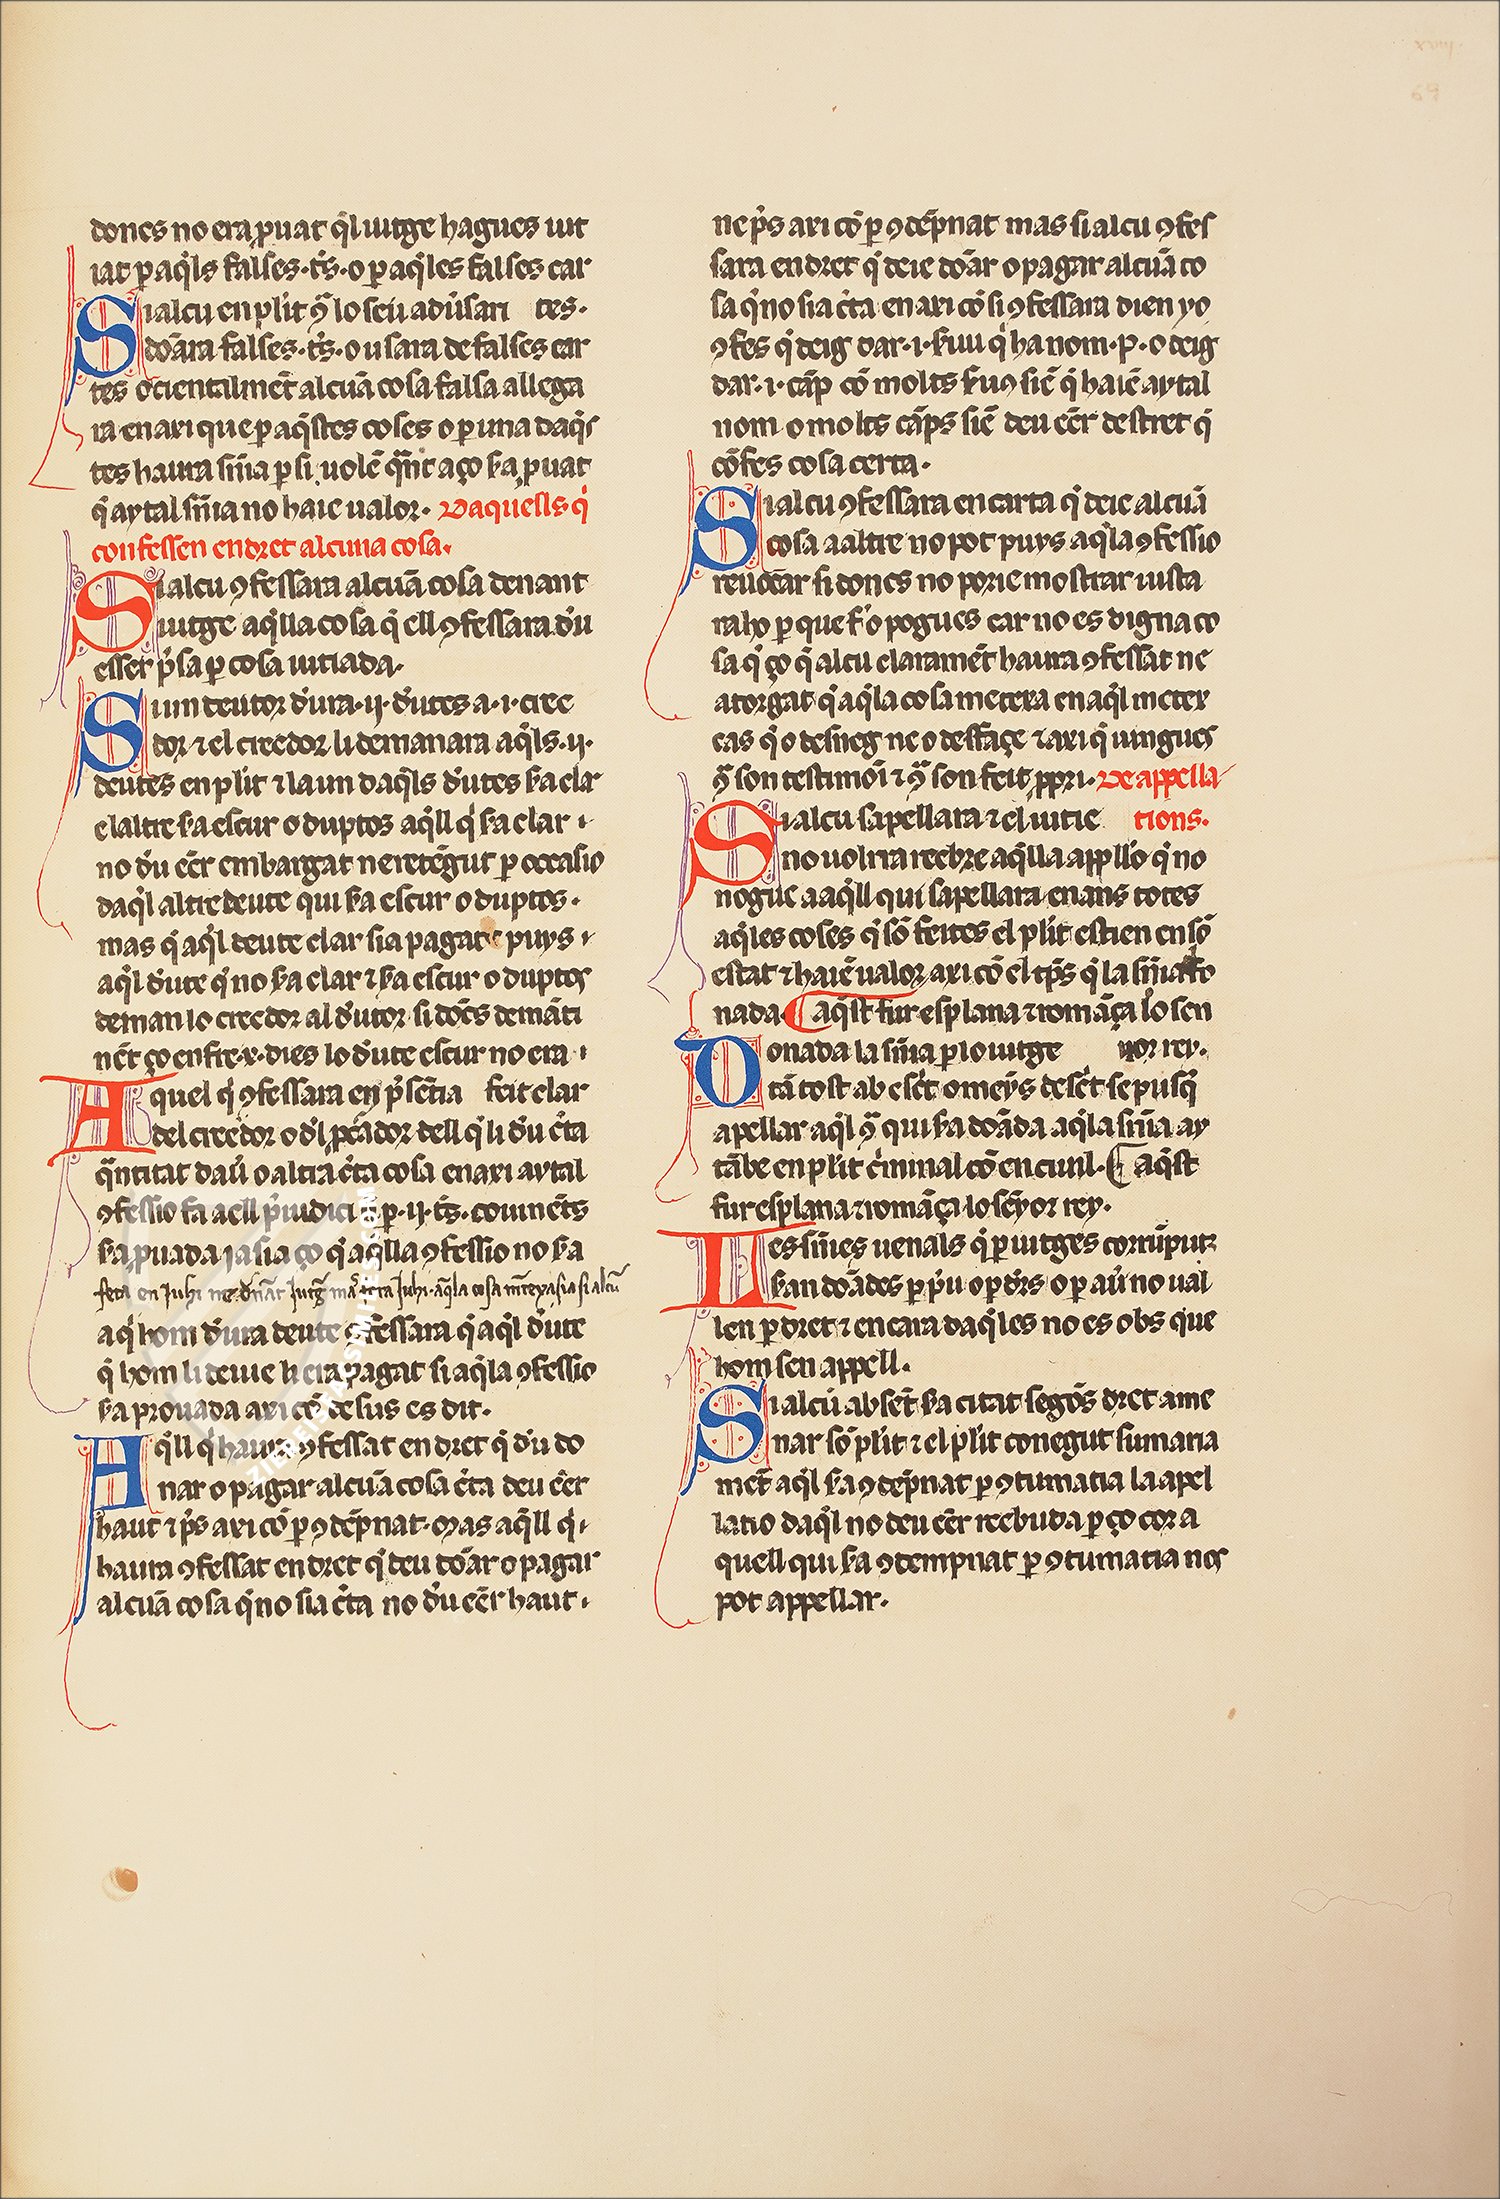 dones no era puat q̇l iutge hagues iut
iat p aq̇ls falses .ts̃. o p aq̇les falses car
Si alcu en plit 9̃ lo seu aduˀsari tes.
doãra falses .ts̃. o usara de falses car
tes o cientalmẽt alcuã cosa falsa allega
ra enaxi que p aq̇stes coses o p una daq̇s
tes haura sñia p si uolẽ q̃nt aço ẜa puat
q̇ aytal sñia no haie ualor. Daquells q̇
confessen en dret alcuna cosa.
Si alcu 9fessara alcuã cosa denant
iutge aq̇lla cosa q̇ ell 9fessara dˀu
esser pˀsa p cosa iutiada.
Si un deutor dˀura .ij. dˀutes a .i. cree
dor ⁊ el creedor li demanara aq̇ls .ij.
deutes en plit ⁊ la un daq̇ls dˀutes ẜa clar
e laltre ẜa escur o duptos aq̇ll q̇ ẜa clar
no dˀu eẽr embargat ne retẽgut p occasio
daq̇l altre deute qui ẜa escur o duptos.
mas q̇ aq̇l deute clar sia pagat e puys
aq̇l dˀute q̇ no ẜa clar ⁊ ẜa escur o duptos
deman lo creedor al dˀutor si doc̃s demãti
nẽt ço enfre .x. dies lo dˀute escur no era
Aquel q̇ 9fessara en pˀsẽtia feit clar
del creedor o dˀl pc̃ador dell q̇ li dˀu cˀta
q̃ntitat dauˀ o altra cˀta cosa enaxi aytal
9fessio fa a ell pˀiudici p .ij. ts̃. couinẽts
ẜa puada ia sia ço q̇ aq̇lla 9fessio no ẜa
feta en Juhi ne dˀnãt Jutg̃ mãˀ fora Juhi. aq̃la cosa mẽtexa sia si alcũ
a q̇ hom dˀura deute 9fessara q̇ aq̇l dˀute
q̇ hom li deuie li era pagat si aq̇la 9fessio
ẜa prouada axi cõ desus es dit.
Aq̇ll q̇ haura 9fessat en dret q̇ dˀu do
nar o pagar alcuã cosa cˀta deu eẽr
haut ⁊ pˀs axi cõ p 9dẽpnat. mas aq̇ll q̇
haura 9fessat en dret q̇ deu doãr o pagar
alcuã cosa q̇ no sia cˀta no dˀu eẽr haut
ne pˀs axi cõ p 9dẽpnat mas si alcu 9fes
sara en dret q̇ deie doãr o pagar alcuã co
sa q̇ no sia cˀta enaxi cõ si 9fessara dien yo
9fes q̇ deig dar .i. ẜuu q̇ ha nom .p. o deig
dar .i. cãp cõ molts ẜu9 siẽ q̇ haiẽ aytal
nom o molts cãps siẽ deu eẽr destret q̇
cõfes cosa certa.
Si alcu 9fessara en carta q̇ deie alcuã
cosa a altre no pot puys aq̇la 9fessio
reuocar si dones no porie mostrar iusta
raho p que fˀ o pogues car no es digna co
sa q̇ ço q̇ alcu claramẽt haura 9fessat ne
atorgat q̇ aq̇la cosa metexa en aq̇l metex
cas q̇ o desneg ne o desfaçe ⁊ axi q̇ uingues
9̃ son testimoĩ ⁊ 9̃ son feit ppri. De appella
Si alcu sapellara ⁊ el iutie tions.
no uolrra reebre aq̇lla appllˀo q̇ no
nogue a aq̇ll qui sapellara enans totes
aq̇les coses q̇ sõ feites el plit estien en sõ
estat ⁊ haiẽ ualor axi cõ el tp̃s q̇ la sñia fo
nada. ¶ aq̇st fur esplana ⁊ romãça lo sen
Donada la sñia p lo iutge yor rey.
tã tost ab escˀt o meỹs descˀt se pusq̇
apellar aq̇l 9̃ qui ẜa doãda aq̇la sñia ay
tãbe en plit cˀminal cõ en ciuil. ¶ aq̇st
fur esplana ⁊ romãça lo seỹor rey.
Les sñies uenals q̇ p iutges corrũput₂
ẜan doãdes p pˀu o p dˀrs o p auˀ no ual
len p dret ⁊ encara daq̇les no es obs que
hom sen appell.
Si alcũ absẽt ẜa citat segõs dret ame
nar sõ plit ⁊ el plit conegut sumaria
mẽt aq̇l ẜa 9dẽpnat p 9tumatia la apel
latio daq̇l no deu eẽr reebuda p ço cor a
quell qui ẜa 9dempnat p 9tumatia nos
pot appellar.